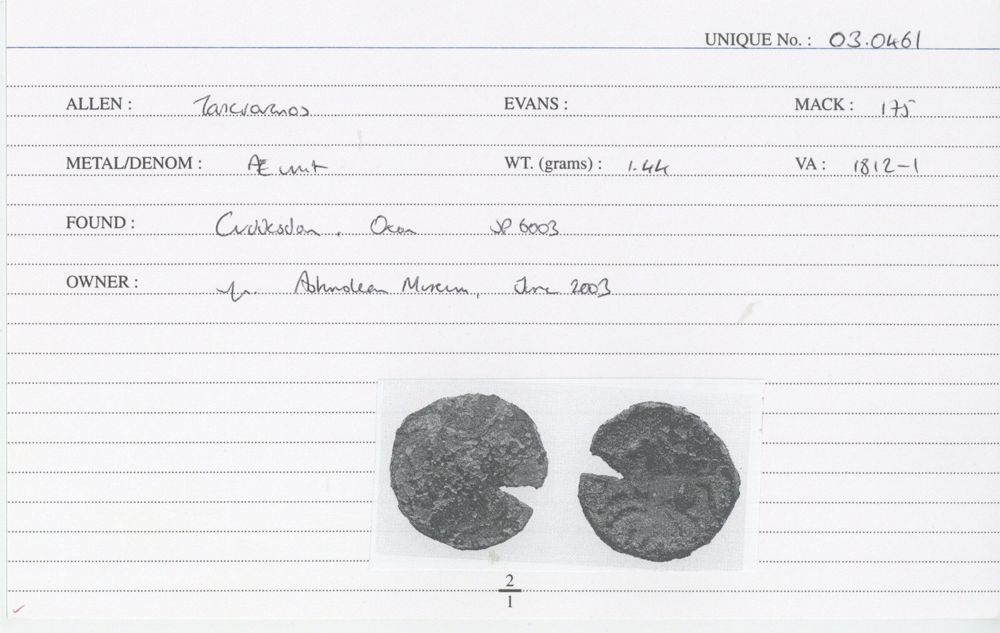 UNIQUE No. : 03.0461
ALLEN : Tasciovanos EVANS : MACK : 175
METAL/DENOM : Æ unit WT. (grams) : 1.44 VA : 1812-1
FOUND : Cuddesdon, Oxon SP 6003
OWNER : Ashmolean Museum, June 2003
2
1